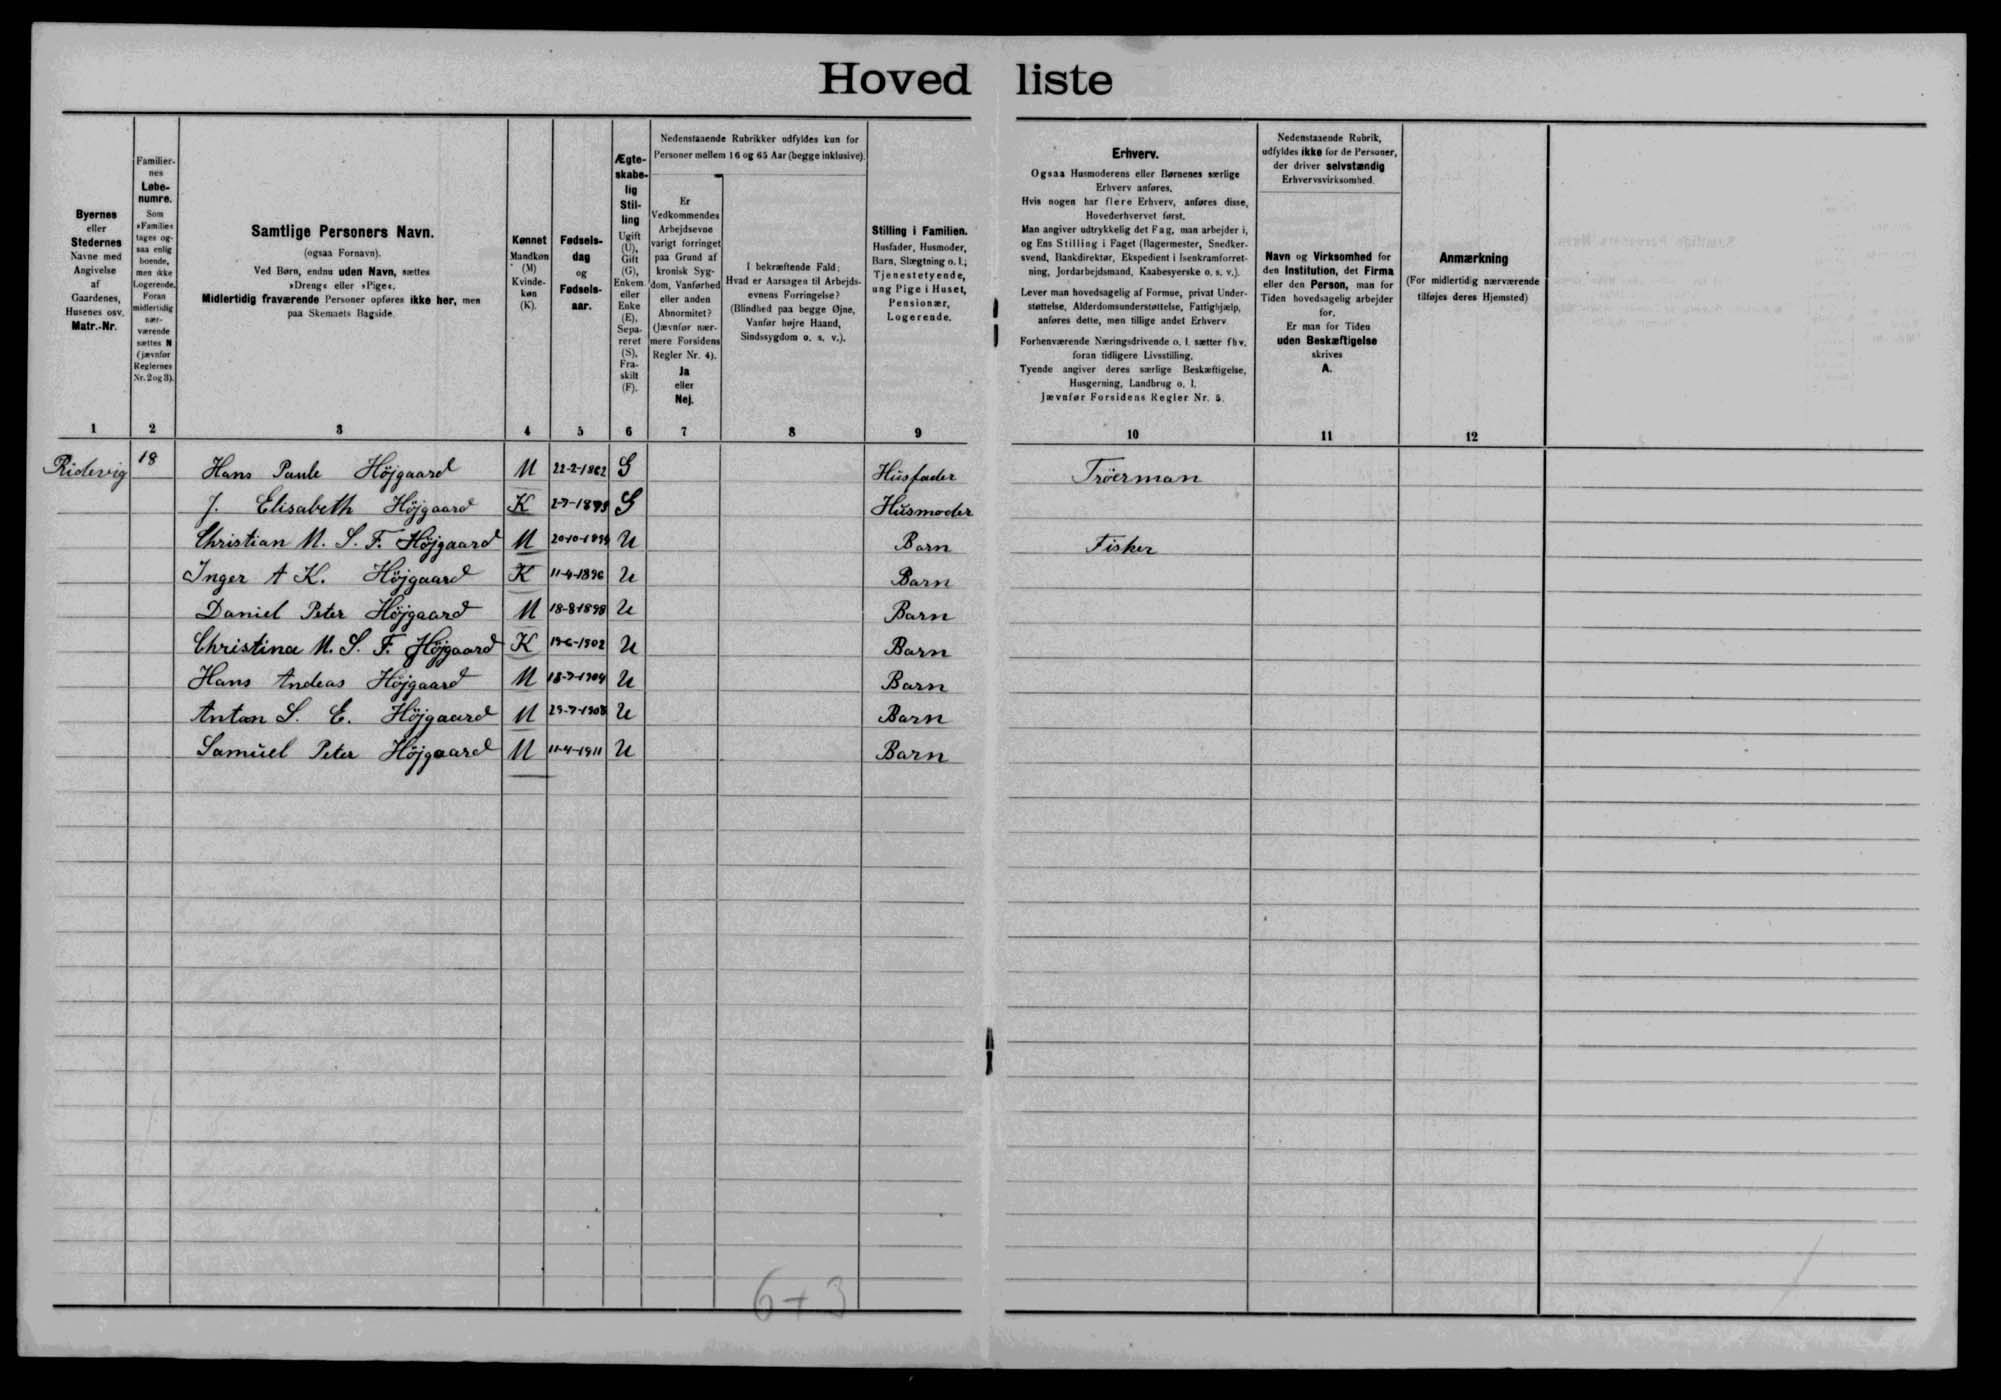 Hoved liste
Byernes
eller
Stedernes
Navne med
Angivelse
af
Gaardenes,
Husenes osv.
Matr.-Nr.
Familier-
nes
Løbe-
numre.
Som
»Familie«
tages og-
saa enlig
boende,
men ikke
Logerende.
Foran
midlertidig
nær-
værende
sættes N
(jævnfør
Reglernes
Nr. 2 og 3).
Samtlige Personers Navn.
(ogsaa Fornavn).
Ved Børn, endnu uden Navn, sættes
»Dreng« eller »Pige«.
Midlertidig fraværende Personer opføres ikke her, men
paa Skemaets Bagside.
Kønnet
Mandkøn
(M)
Kvinde-
køn
(K).
Fødsels-
dag
og
Fødsels-
aar.
Ægte-
skabe-
lig
Stil-
ling
Ugift
(U),
Gift
(G),
Enkem.
eller
Enke
(E),
Sepa-
reret
(S),
Fra-
skilt
(F).
Nedenstaaende Rubrikker udfyldes kun for
Personer mellem 16 og 65 Aar (begge inklusive).
Er
Vedkommendes
Arbejdsevne
varigt forringet
paa Grund af
kronisk Syg-
dom, Vanførhed
eller anden
Abnormitet?
(Jævnfør nær-
mere Forsidens
Regler Nr. 4).
Ja
eller
Nej.
I bekræftende Fald:
Hvad er Aarsagen til Arbejds-
evnens Forringelse?
(Blindhed paa begge Øjne,
Vanfør højre Haand,
Sindssygdom o. s. v.).
Stilling i Familien.
Husfader, Husmoder,
Barn, Slægtning o. l.;
Tjenestetyende,
ung Pige i Huset,
Pensionær,
Logerende.
Erhverv.
Ogsaa Husmoderens eller Børnenes særlige
Erhverv anføres.
Hvis nogen har flere Erhverv, anføres disse,
Hovederhvervet først.
Man angiver udtrykkelig det Fag, man arbejder i,
og Ens Stilling i Faget (Bagermester, Snedker-
svend, Bankdirektør, Ekspedient i Isenkramforret-
ning, Jordarbejdsmand, Kaabesyerske o. s. v.).
Lever man hovedsagelig af Formue, privat Under-
støttelse, Alderdomsunderstøttelse, Fattighjælp,
anføres dette, men tillige andet Erhverv
Forhenværende Næringsdrivende o. l. sætter fhv.
foran tidligere Livsstilling.
Tyende angiver deres særlige Beskæftigelse,
Husgerning, Landbrug o. l.
Jævnfør Forsidens Regler Nr. 5.
Nedenstaaende Rubrik,
udfyldes ikke for de Personer,
der driver selvstændig
Erhvervsvirksomhed.
Navn og Virksomhed for
den Institution, det Firma
eller den Person, man for
Tiden hovedsagelig arbejder
for.
Er man for Tiden
uden Beskæftigelse
skrives
A.
Anmærkning
(For midlertidig nærværende
tilføjes deres Hjemsted)
1 2 3 4 5 6 7 8 9 10 11 12
Ridevig 18 Hans Paule Höjgaard M 22-2-1862 G Husfader Tröerman
J. Elisabeth Höjgaard K G Husmoder
Christian M. S. F. Höjgaard M U Barn Fisker
Inger A K. Höjgaard K 11-4-1896 U Barn
Daniel Peter Höjgaard M 18-8-1898 U Barn
Christina M. S. F. Höjgaard K 19-6-1902 U Barn
Hans Andeas Höjgaard M 18-7-1904 U Barn
Anton S. E. Höjgaard M 29-7-1908 U Barn
Samüel Peter Höjgaard M 11-4-1911 U Barn
6+3